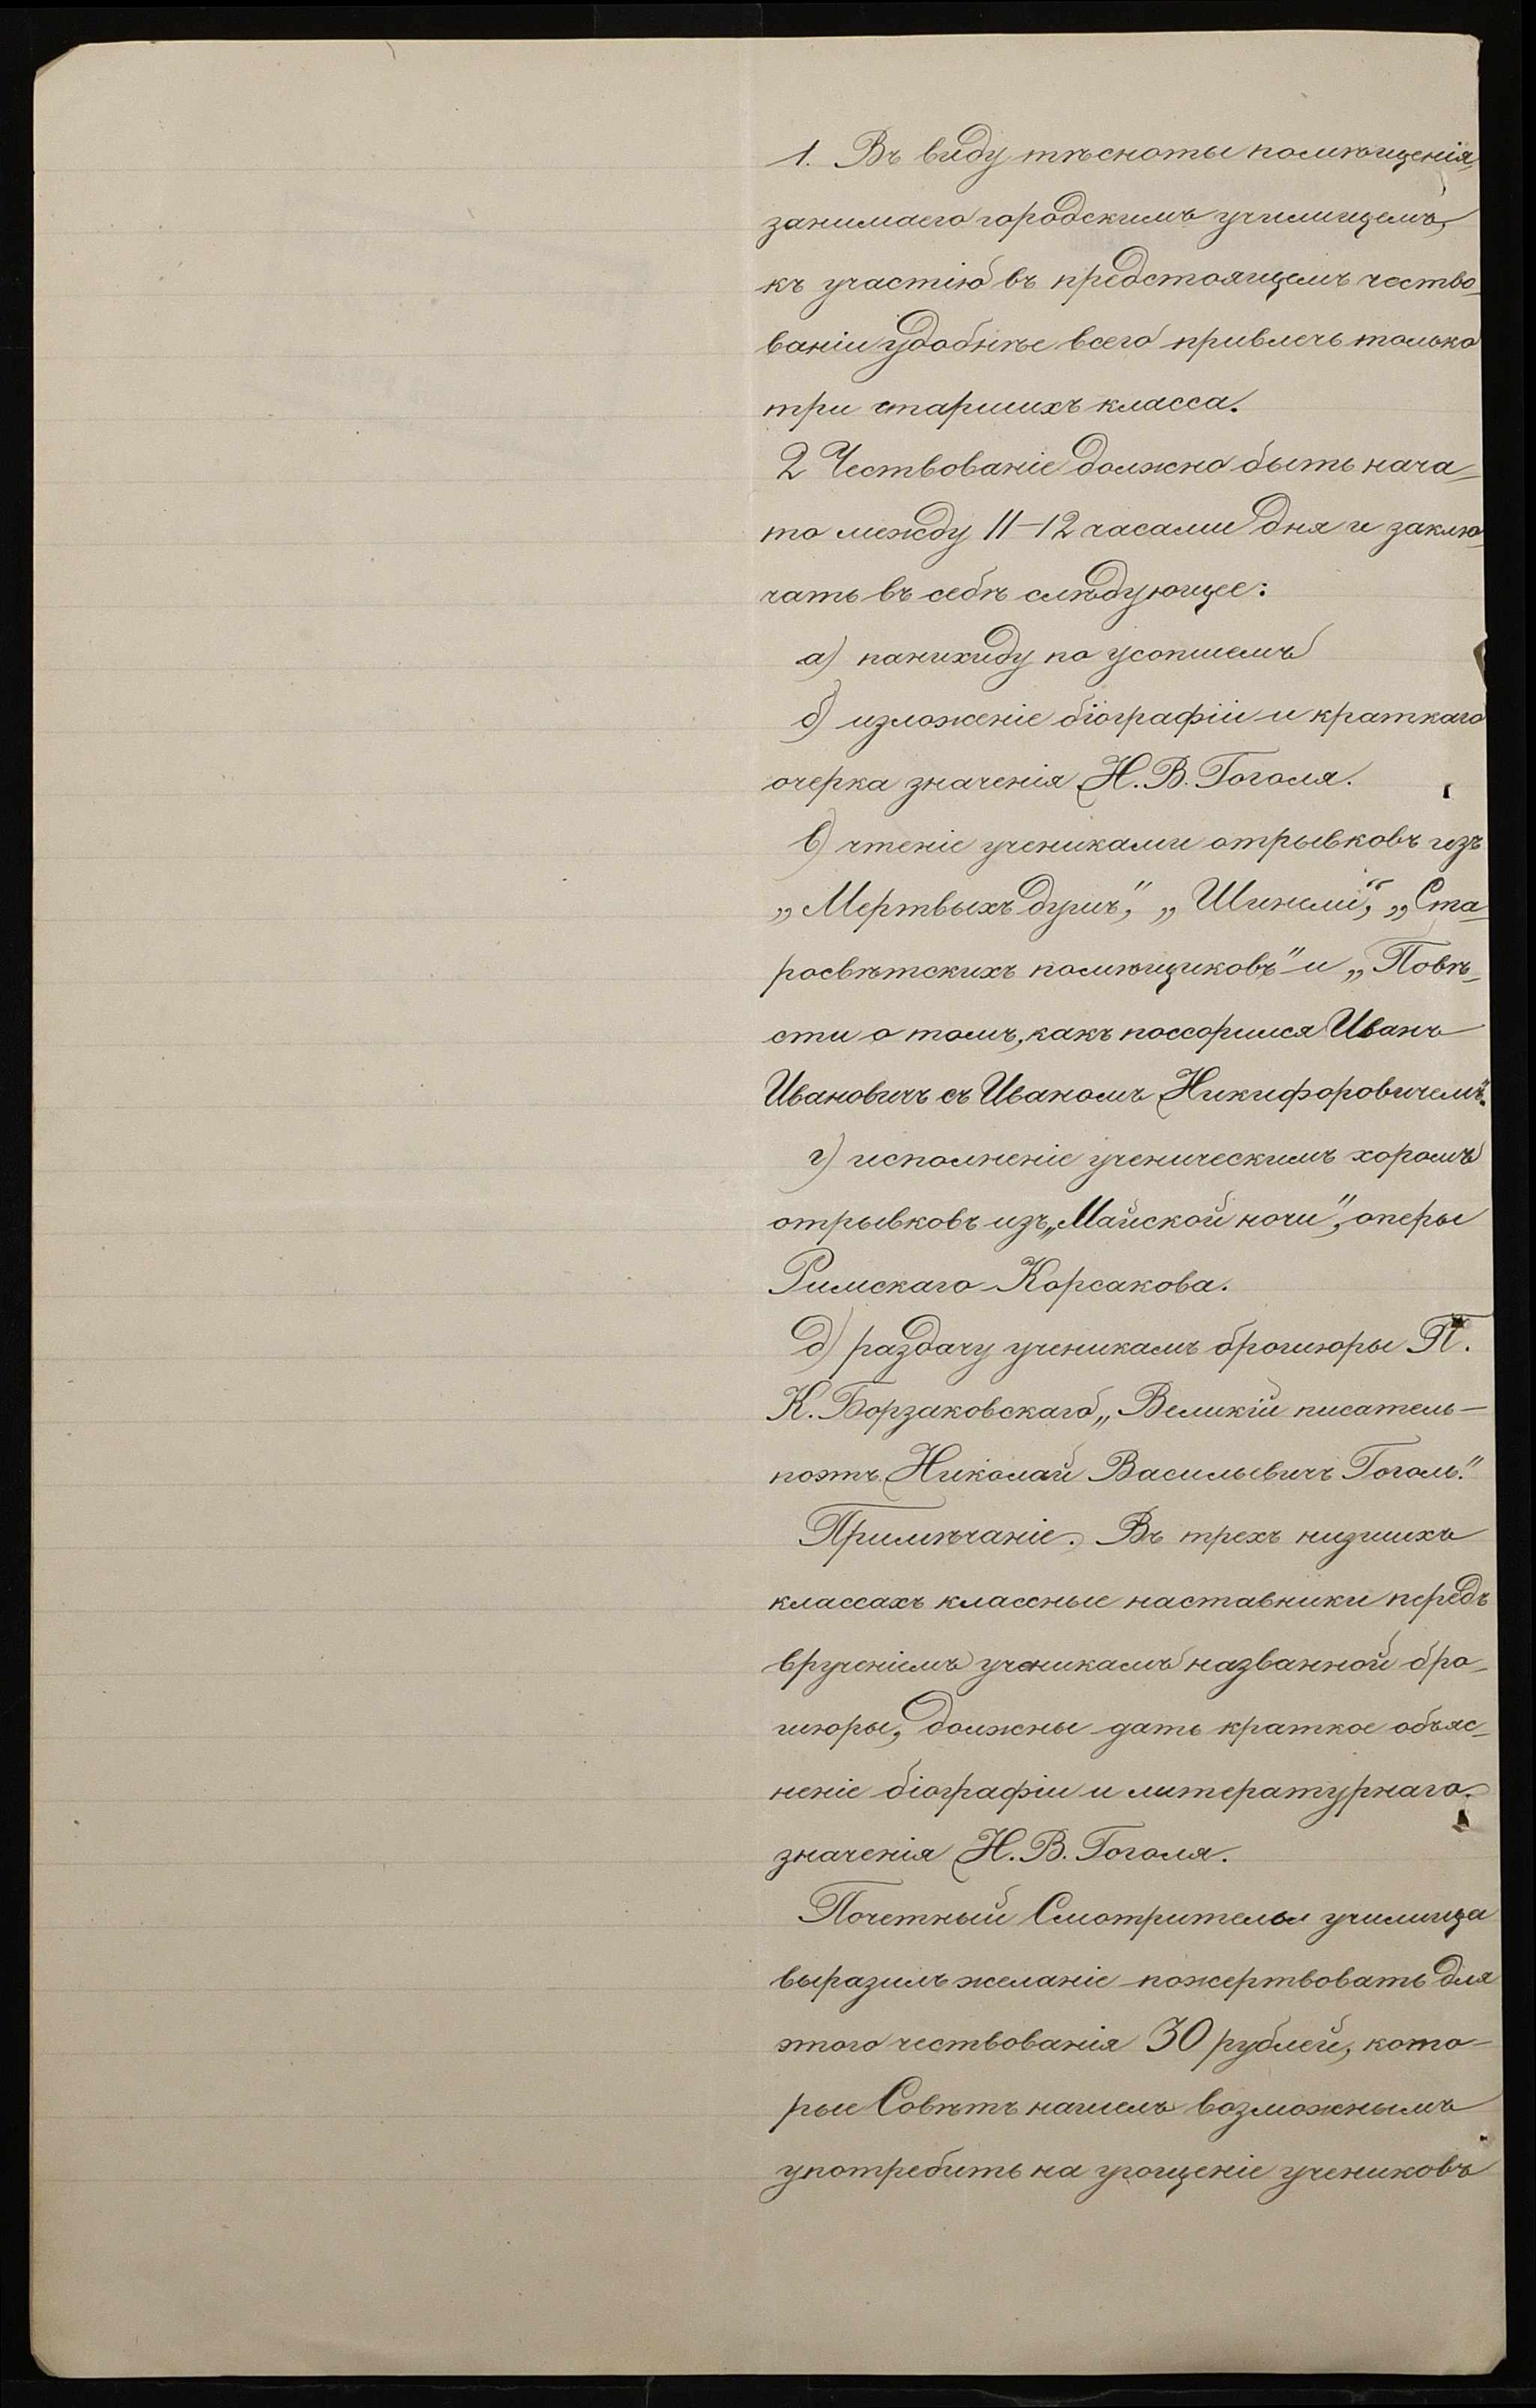 1. Въ виду тѣсноты помѣщенія,
занимаего городскимъ училищемъ,
къ участію въ предстоящемъ чество-
ваніи удобнѣе всего привлечь только
три старшихъ класса.
2 Чествованіе должно быть нача-
то между 11-12 часами дня и заклю-
чать въ себѣ слѣдующее:
а) панихиду по усопшемъ
б) изложеніе біографіи и краткаго
очерка значенія Н. В. Гоголя.
в) чтеніе учениками отрывковъ изъ
„Мертвыхъ душъ", „Шинели", „Ста-
росвѣтскихъ помѣщиковъ" и „Повѣ-
сти о томъ, какъ поссорился Иванъ
Ивановичъ съ Иваномъ Никифоровичемъ".
г) исполненіе ученическимъ хоромъ
отрывковъ изъ „Майской ночи", оперы
Римскаго-Корсакова.
д) раздачу ученикамъ брошюры П.
К. Борзаковскаго „Великій писатель-
поэтъ Николай Васильевичъ Гоголь."
Примѣчаніе. Въ трехъ низшихъ
классахъ классные наставники передъ
врученіемъ ученикамъ названной бро-
шюры, должны дать краткое объяс-
неніе біографіи и литературнаго
значенія Н. В. Гоголя.
Почетный Смотритель училища
выразилъ желаніе пожертвовать для
этого чествованія 30 рублей, кото-
рые Совѣтъ нашелъ возможнымъ
употребить на угощеніе учениковъ